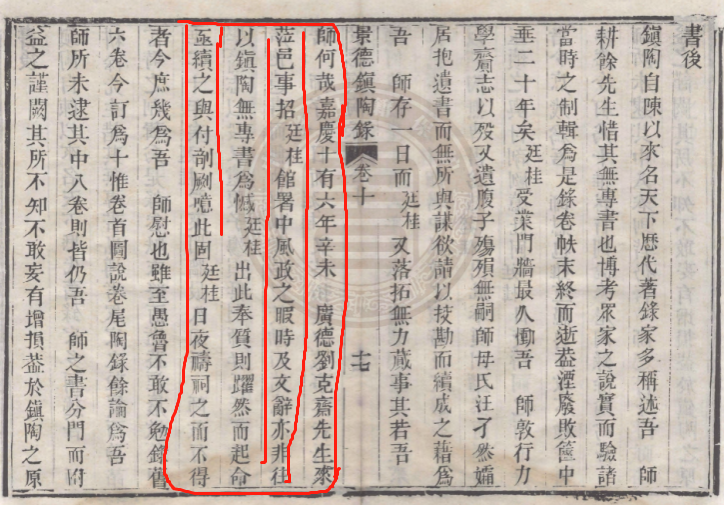 書後
鎮陶自陳以來名天下歷代著錄家多稱述吾 師
耕餘先生惜其無專書也博考眾家之說實而驗諸
當時之制輯為是錄卷帙未終而逝葢湮廢敗簏中
垂二十年矣廷桂受業門牆最久慟吾 師敦行力
學齎志以歿又遺腹子殤殞無嗣師母氏汪孑然孀
居抱遺書而無所與謀欲請以技勘而續成之藉為
吾 師存一日而廷桂又落拓無力蕆事其若吾
景德鎮陶錄 卷十 十七
師何哉嘉慶十有六年辛未 廣德劉克齋先生來
蒞邑事招廷桂館署中風政之暇時及文辭亦非往
以鎮陶無專書為憾廷桂出此奉質則躍然而起命
亟續之與付剞劂噫此固廷桂日夜禱祠之而不得
者今庶幾為吾 師慰也雖至愚魯不敢不勉錄舊
六卷今訂為十惟卷首圖說卷尾陶錄餘論為吾
師所未逮其中八卷則皆仍吾 師之書分門而附
益之謹闕其所不知不敢妄有增損葢於鎮陶之原